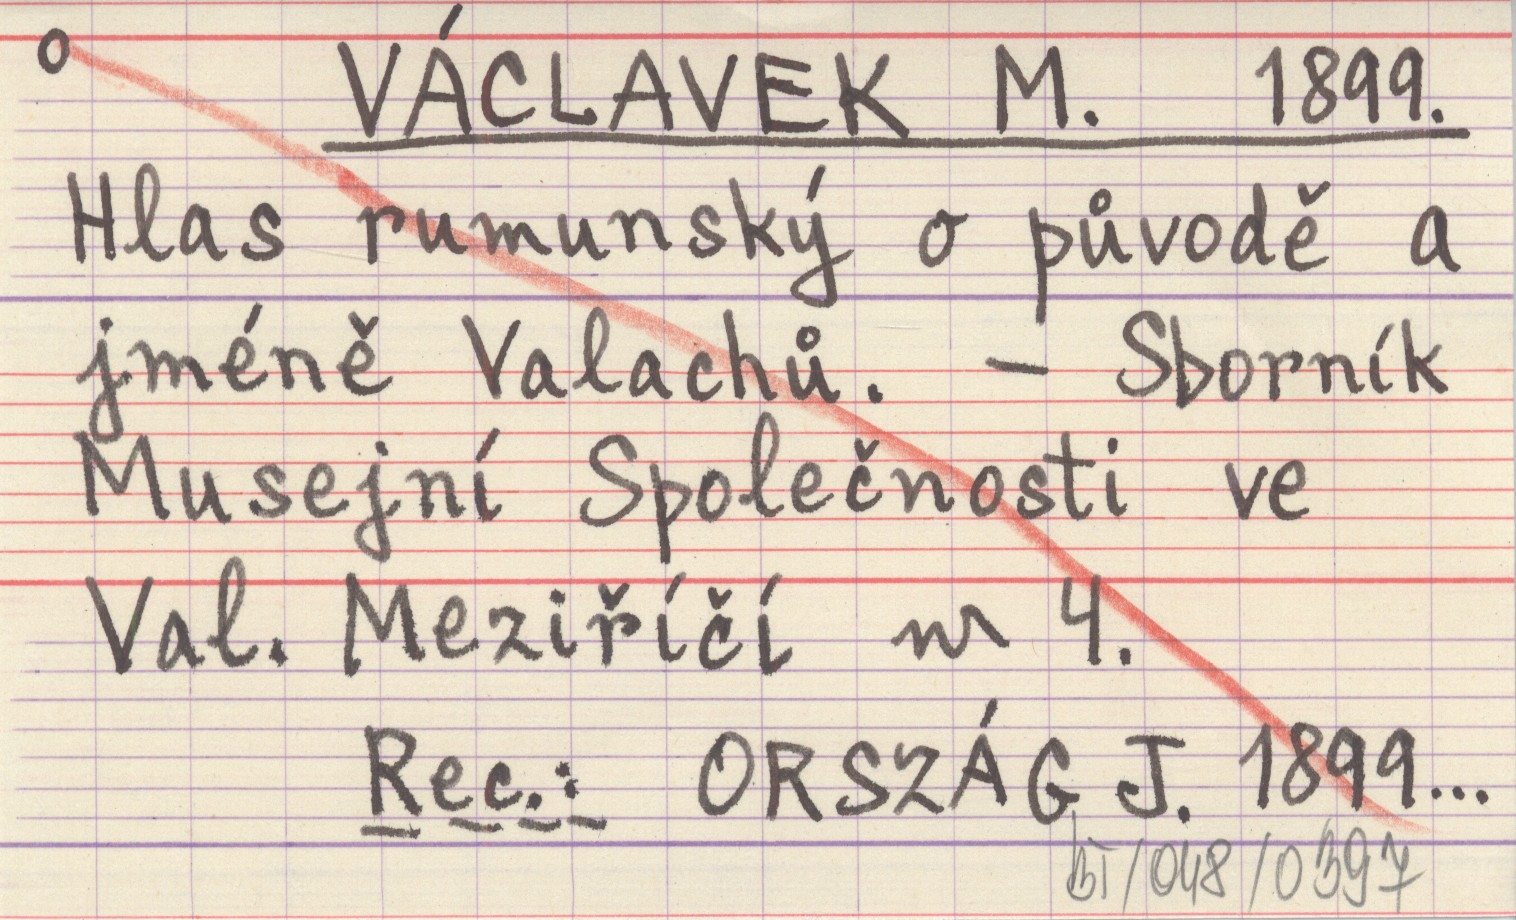 o VÁCLAVEK M. 1899.
Hlas rumunský o původě a
jméně Valachů. – Sborník
Musejní Společnosti ve
Val. Meziříčí nr 4.
Rec.: ORSZÁG J. 1899...
BT/048/0397